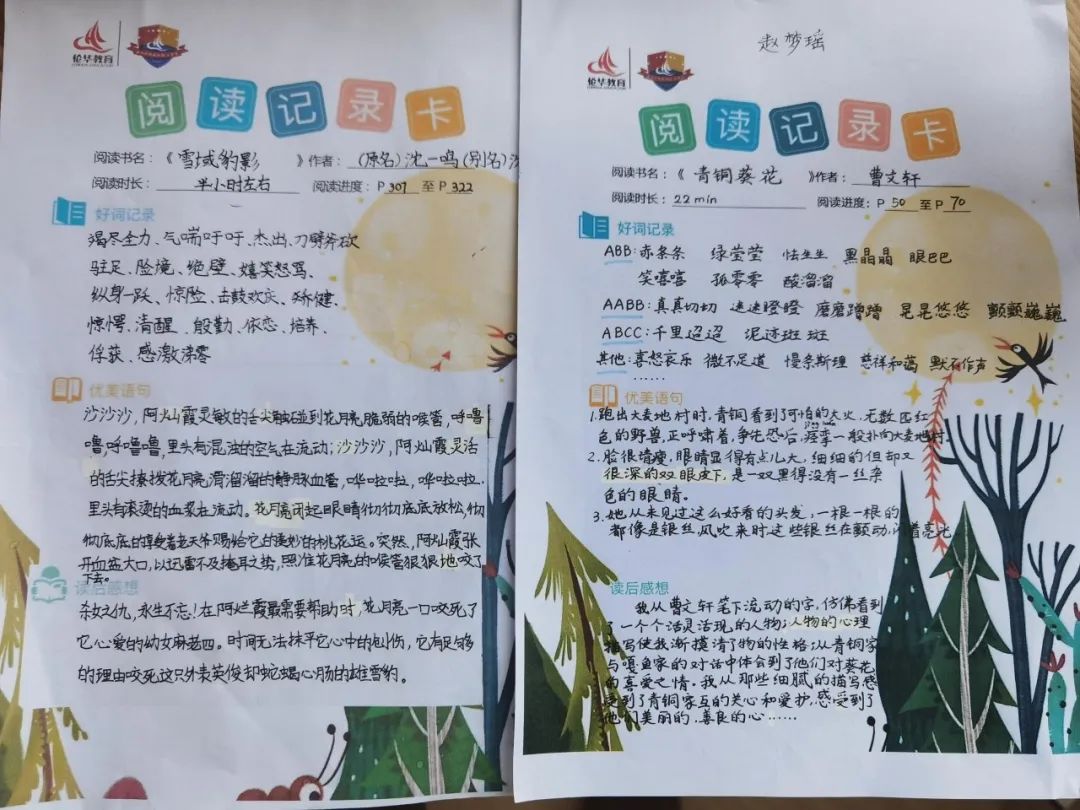 伦华教育
阅读记录卡
阅读书名：《雪域豹影》作者：(原名)沈一鸣(别名)沈
阅读时长：半小时左右 阅读进度：P 307 至 P 322
好词记录
竭尽全力、气喘吁吁、杰出、刀劈斧砍
驻足、脸境、绝壁、嬉笑怒骂、
纵身一跃、惊险、击鼓欢庆、矫健、
惊愕、清醒、殷勤、依恋、培养、
俘获、感激涕零
优美语句
沙沙沙，阿灿霞灵敏的舌尖触碰到花月亮脆弱的喉管，呼噜
噜，呼噜噜，里头有混浊的空气在流动；沙沙沙，阿灿霞灵活
的舌尖撩拨花月亮滑溜溜的静脉血管，哗啦啦，哗啦啦，
里头有滚烫的血浆在流动。花月亮闭起眼睛彻彻底底放松，彻
彻底底的享受着老天爷赐给它的美妙的桃花运。突然，阿灿霞张
开血盆大口，以迅雷不及掩耳之势，照准花月亮的喉管狠狠地咬了
下去。
读后感想
杀女之仇，永生不忘！在阿灿霞最需要帮助时，花月亮一口咬死了
它心爱的幼女麻老四。时间无法抹平它心中的创伤，它有足够
的理由咬死这只外表英俊却蛇蝎心肠的雄雪豹。
赵梦瑶
伦华教育
阅读记录卡
阅读书名：《青铜葵花》作者：曹文轩
阅读时长：22 min 阅读进度：P 50 至 P 70
好词记录
ABB：赤条条 绿莹莹 怯生生 黑晶晶 眼巴巴
笑嘻嘻 孤零零 酸溜溜
AABB：真真切切 迷迷瞪瞪 磨磨蹭蹭 晃晃悠悠 颤颤巍巍
ABCC：千里迢迢 泥迹斑斑
其他：喜怒哀乐 微不足道 慢条斯理 慈祥和蔼 默不作声
……
优美语句
1.跑出大麦地村时，青铜看到了可怕的大火，无数匹红
色的野兽，正呼啸着，争先恐后，痉挛一般扑向大麦地村.
2.脸很清瘦，眼睛显得有点儿大，细细的但却又
很深的双眼皮下，是一双黑得没有一丝杂
色的眼睛。
3.她从未见过这么好看的头发，一根一根的
都像是银丝，风吹来时这些银丝在颤动，着亮光
读后感想
我从曹文轩笔下流动的字，仿佛看到
了一个个活灵活现的人物；人物的心理
描写使我渐摸清了物的性格；从青铜家
与嘎鱼家的对话中体会到了他们对葵花
的喜爱之情。我从那些细腻的描写感
受到了青铜家互的关心和爱护，感受到了
他们美丽的，善良的心……